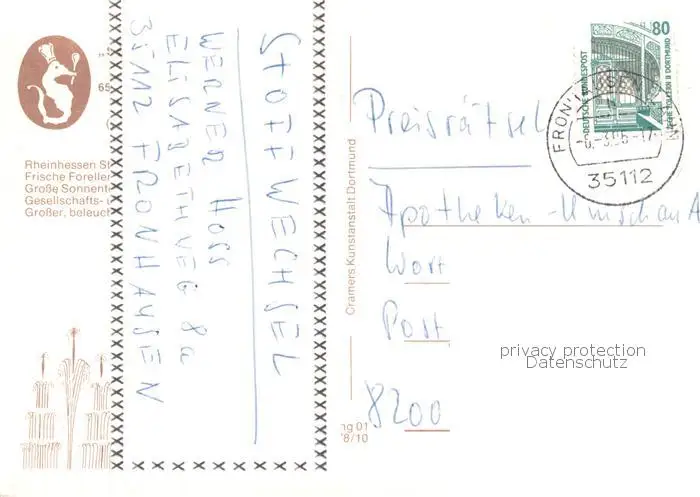 65
Rheinhessen St
Frische Foreller
Große Sonnent
Gesellschafts- u
Großer, beleuch
STOFFWECHSEL
WERNER
ELISABETHWEG 8a
35112 FRONHAUSEN
Cramers Kunstanstalt Dortmund
ng 01
78/10
80
DEUTSCHE BUNDESPOST
ZECHE ZOLLERN II DORTMUND
35112
Preisrätsel
Apotheken-Umschau A
Wort
Post
8200
privacy protection
Datenschutz